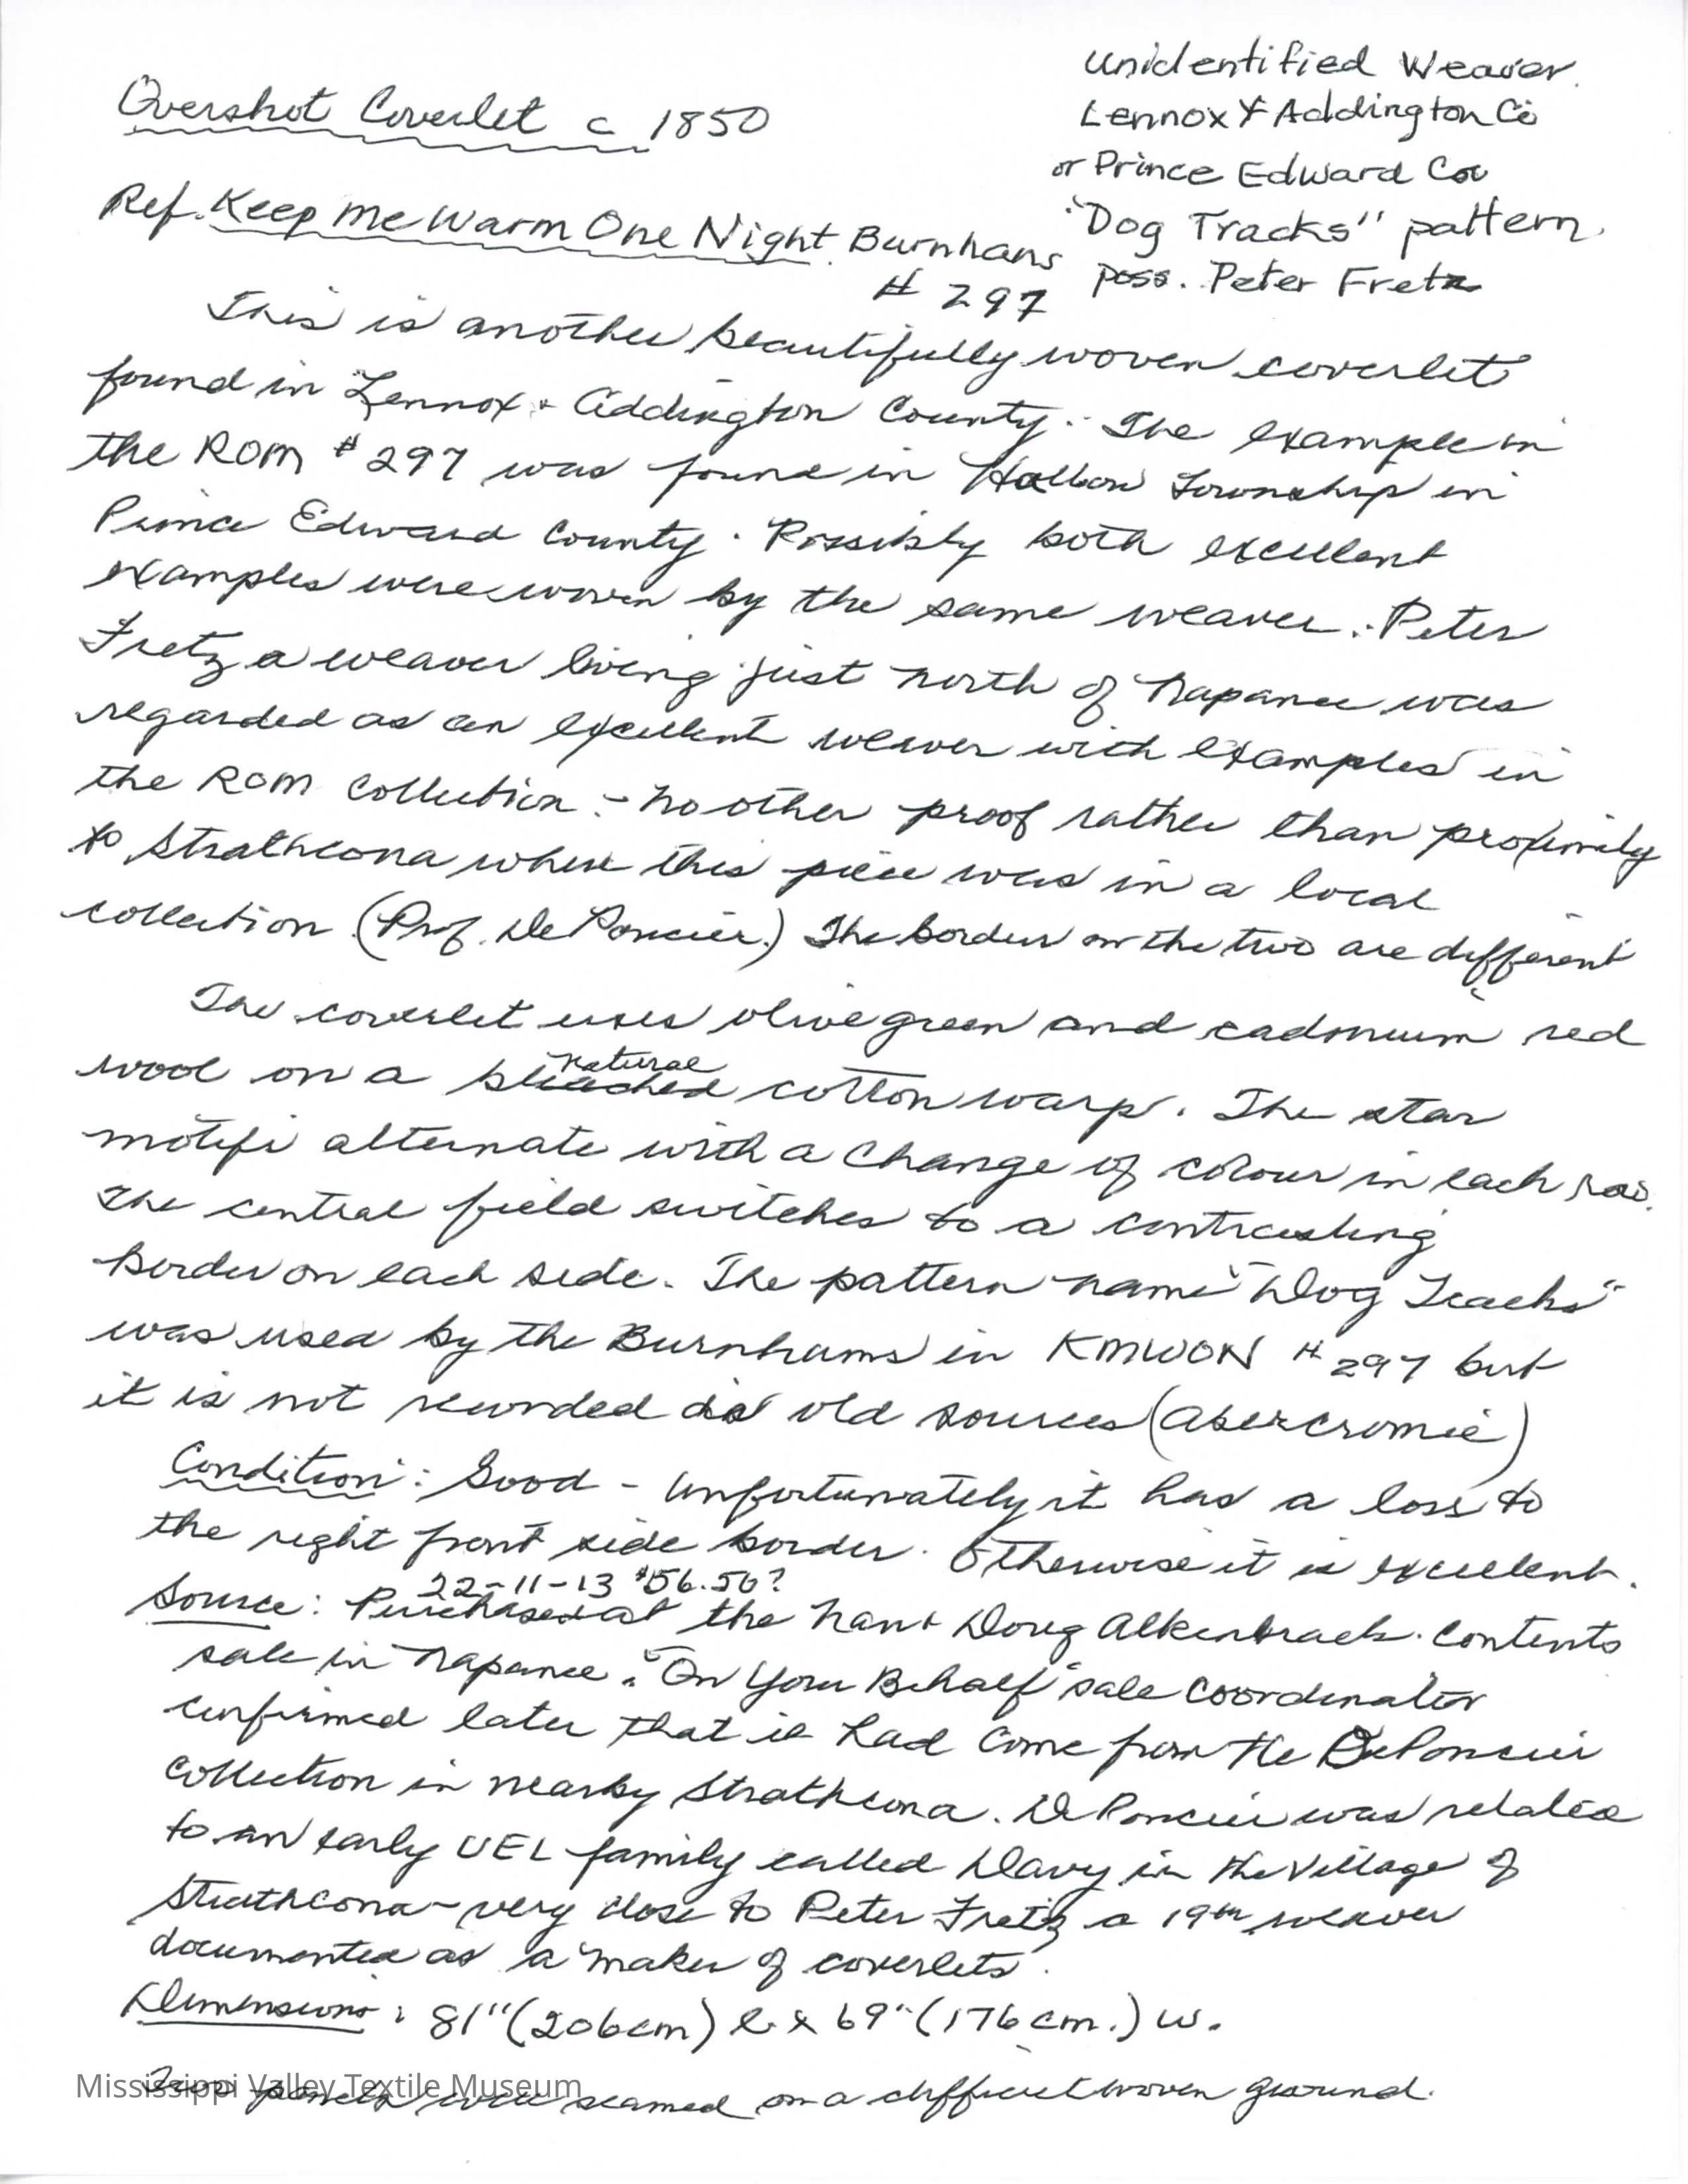 Overshot Coverlet c 1850
unidentified Weaver.
Lennox & Addington Co
or Prince Edward Co
"Dog Tracks" pattern.
poss. Peter Fretz
Ref. Keep Me Warm One Night. Burnhans
# 297
This is another beautifully woven coverlet
found in Lennox & Addington County. The example in
the ROM # 297 was found in Township in
Prince Edward County. Possibly both excellent
examples were woven by the same weaver. Peter
Fretz a weaver living just north of Napanee was
regarded as an excellent weaver with examples in
the ROM collection - no other proof rather than proximity
to Strathcona where this piece was in a local
collection (Prof. De Poncier.) The border on the two are different
The coverlet uses olive green and cadmium red
natural
wool on a bleached cotton warp. The star
motifs alternate with a change of colour in each row.
The central field switches to a contrasting
border on each side. The pattern name "Dog Tracks"
was used by the Burnhams in KMWON # 297 but
it is not recorded in old sources (Abercromie)
Condition: Good - unfortunately it has a loss to
the right front side border. Otherwise it is excellent.
22-11-13 $56.50?
Source: Purchased at the Nan & Doug Alkenbrack contents
sale in Napanee. "On Your Behalf" sale coordinator
confirmed later that it had come from the DePoncier
collection in nearby Strathcona. De Poncier was related
to an early UEL family called Davy in the village of
Strathcona - very close to Peter Fretz a 19th weaver
documented as a maker of coverlets.
Dimensions: 81" (206cm) l. x 69" (176 cm.) w.
Two panels were seamed on a difficient woven ground.
Mississippi Valley Textile Museum